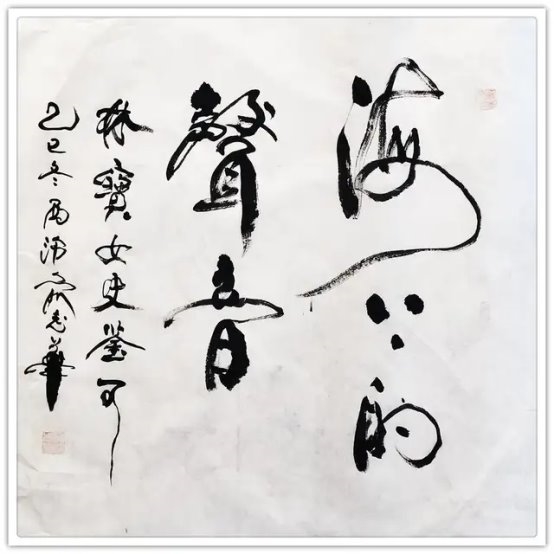 海的
聲音
林寶女史鉴可
乙巳冬志華